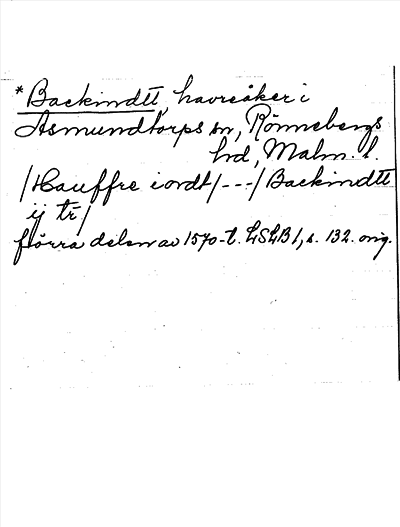 *Backindtt, havreåker i
Asmundtorps sn, Rönnebergs
hd, Malm. l.
/Hauffre iordt/---/Backindtt
ij tr/
förra delen av 1570-t. LSLB 1, s. 132. orig.